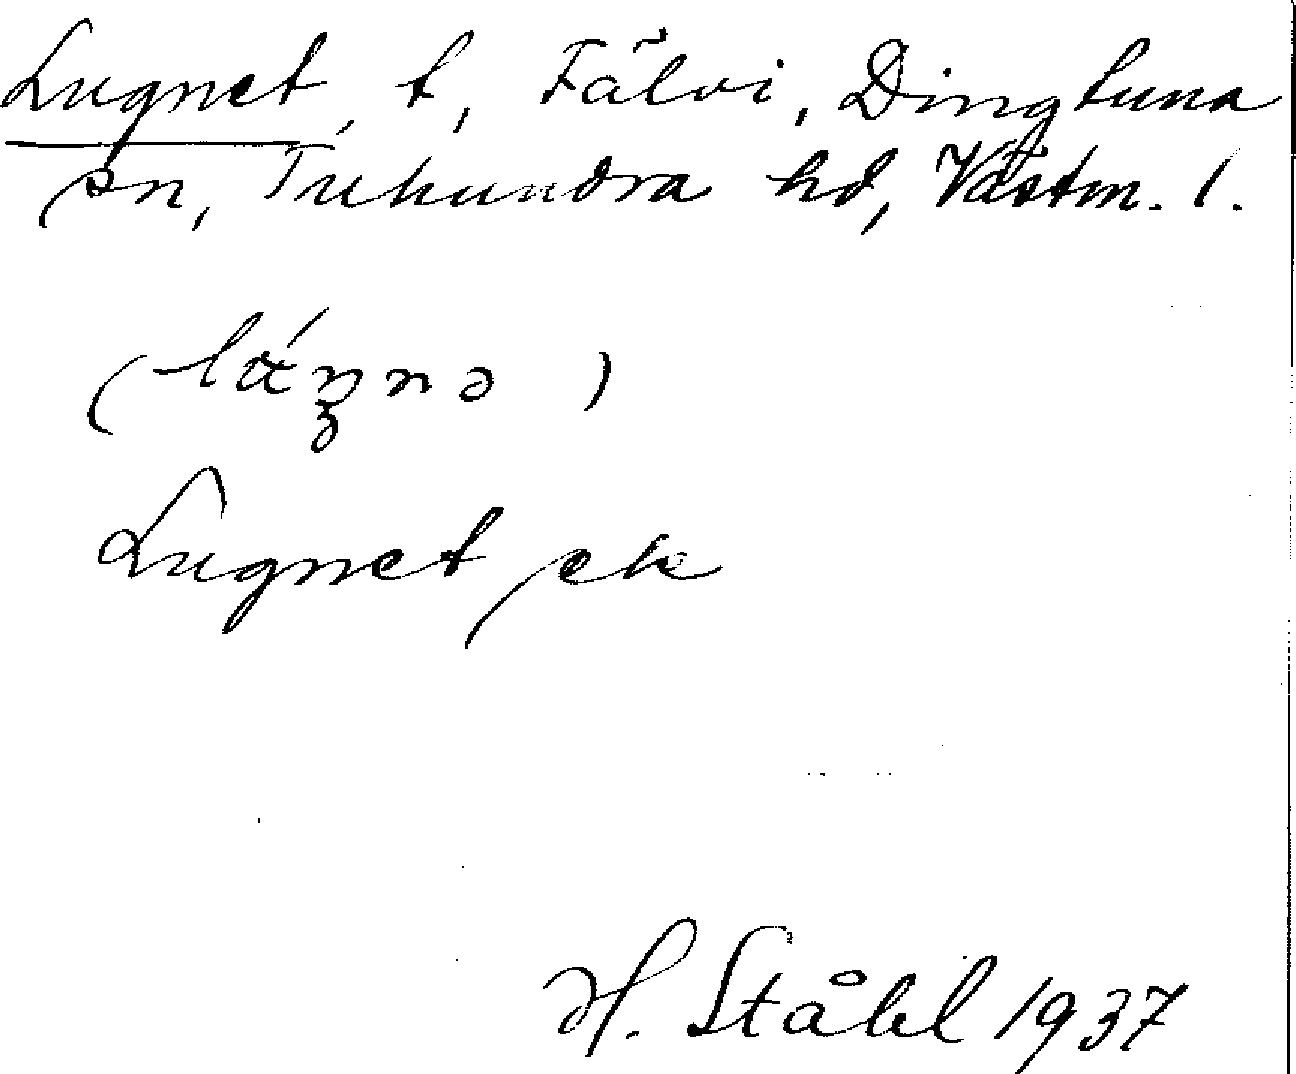 Lugnet, t, Fälvi, Dingtuna
sn, Tuhundra hd, Västm. l.
Lugnet ek
H. Ståhl 1937